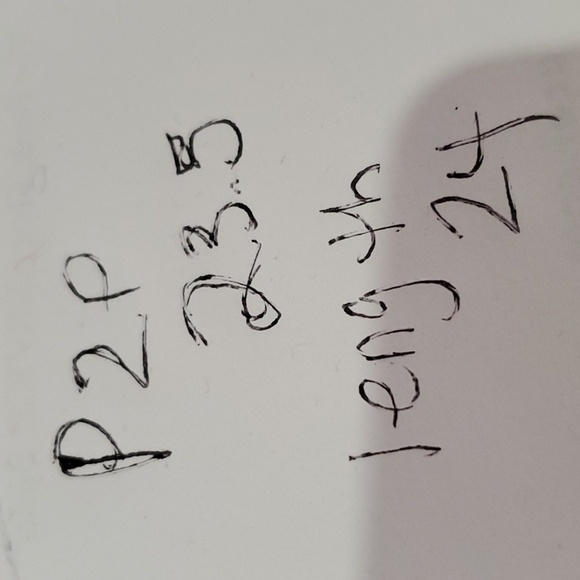 P2P
23.5
length
24